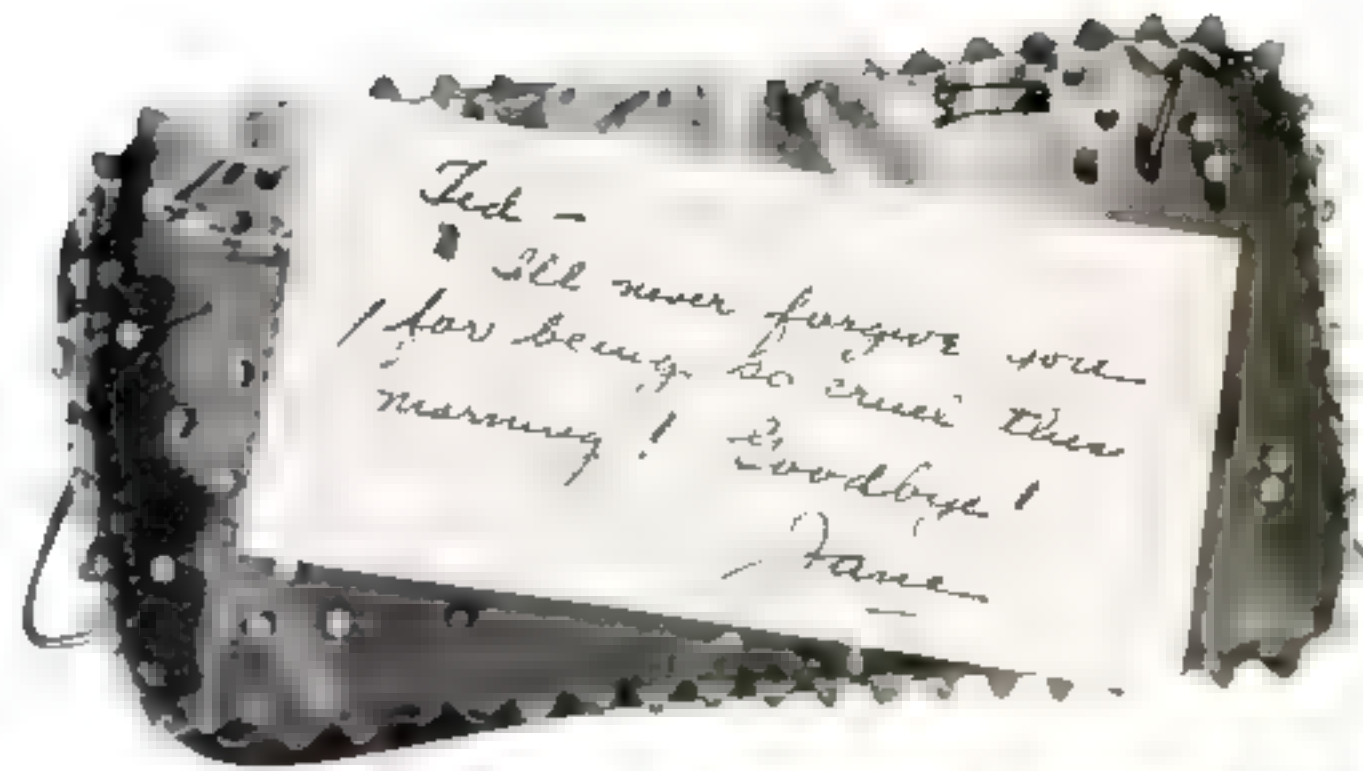 Ted -
I'll never forgive you
for being so cruel this
morning! Goodbye!
Jane